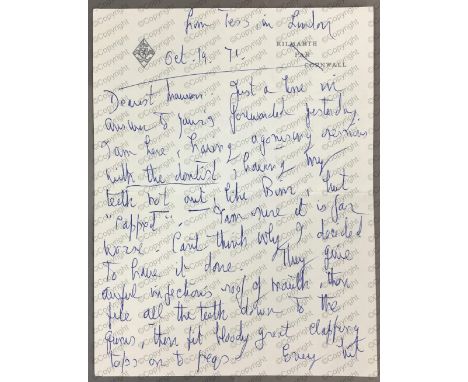 from Tess in London
KILMARTH
PAR
CORNWALL
Oct. 19. 71.
Dearest Maureen. Just a line in
answer to yours forwarded yesterday.
I am here, having agonising sessions
with the dentist, having my
teeth not out, like Bim, but
"capped". I am sure it is far
worse. Can't think why I decided
to have it done. They give
awful injections roof of mouth, then
file all the teeth down to the
gums, then fit bloody great clapping
tops on to pegs. Every